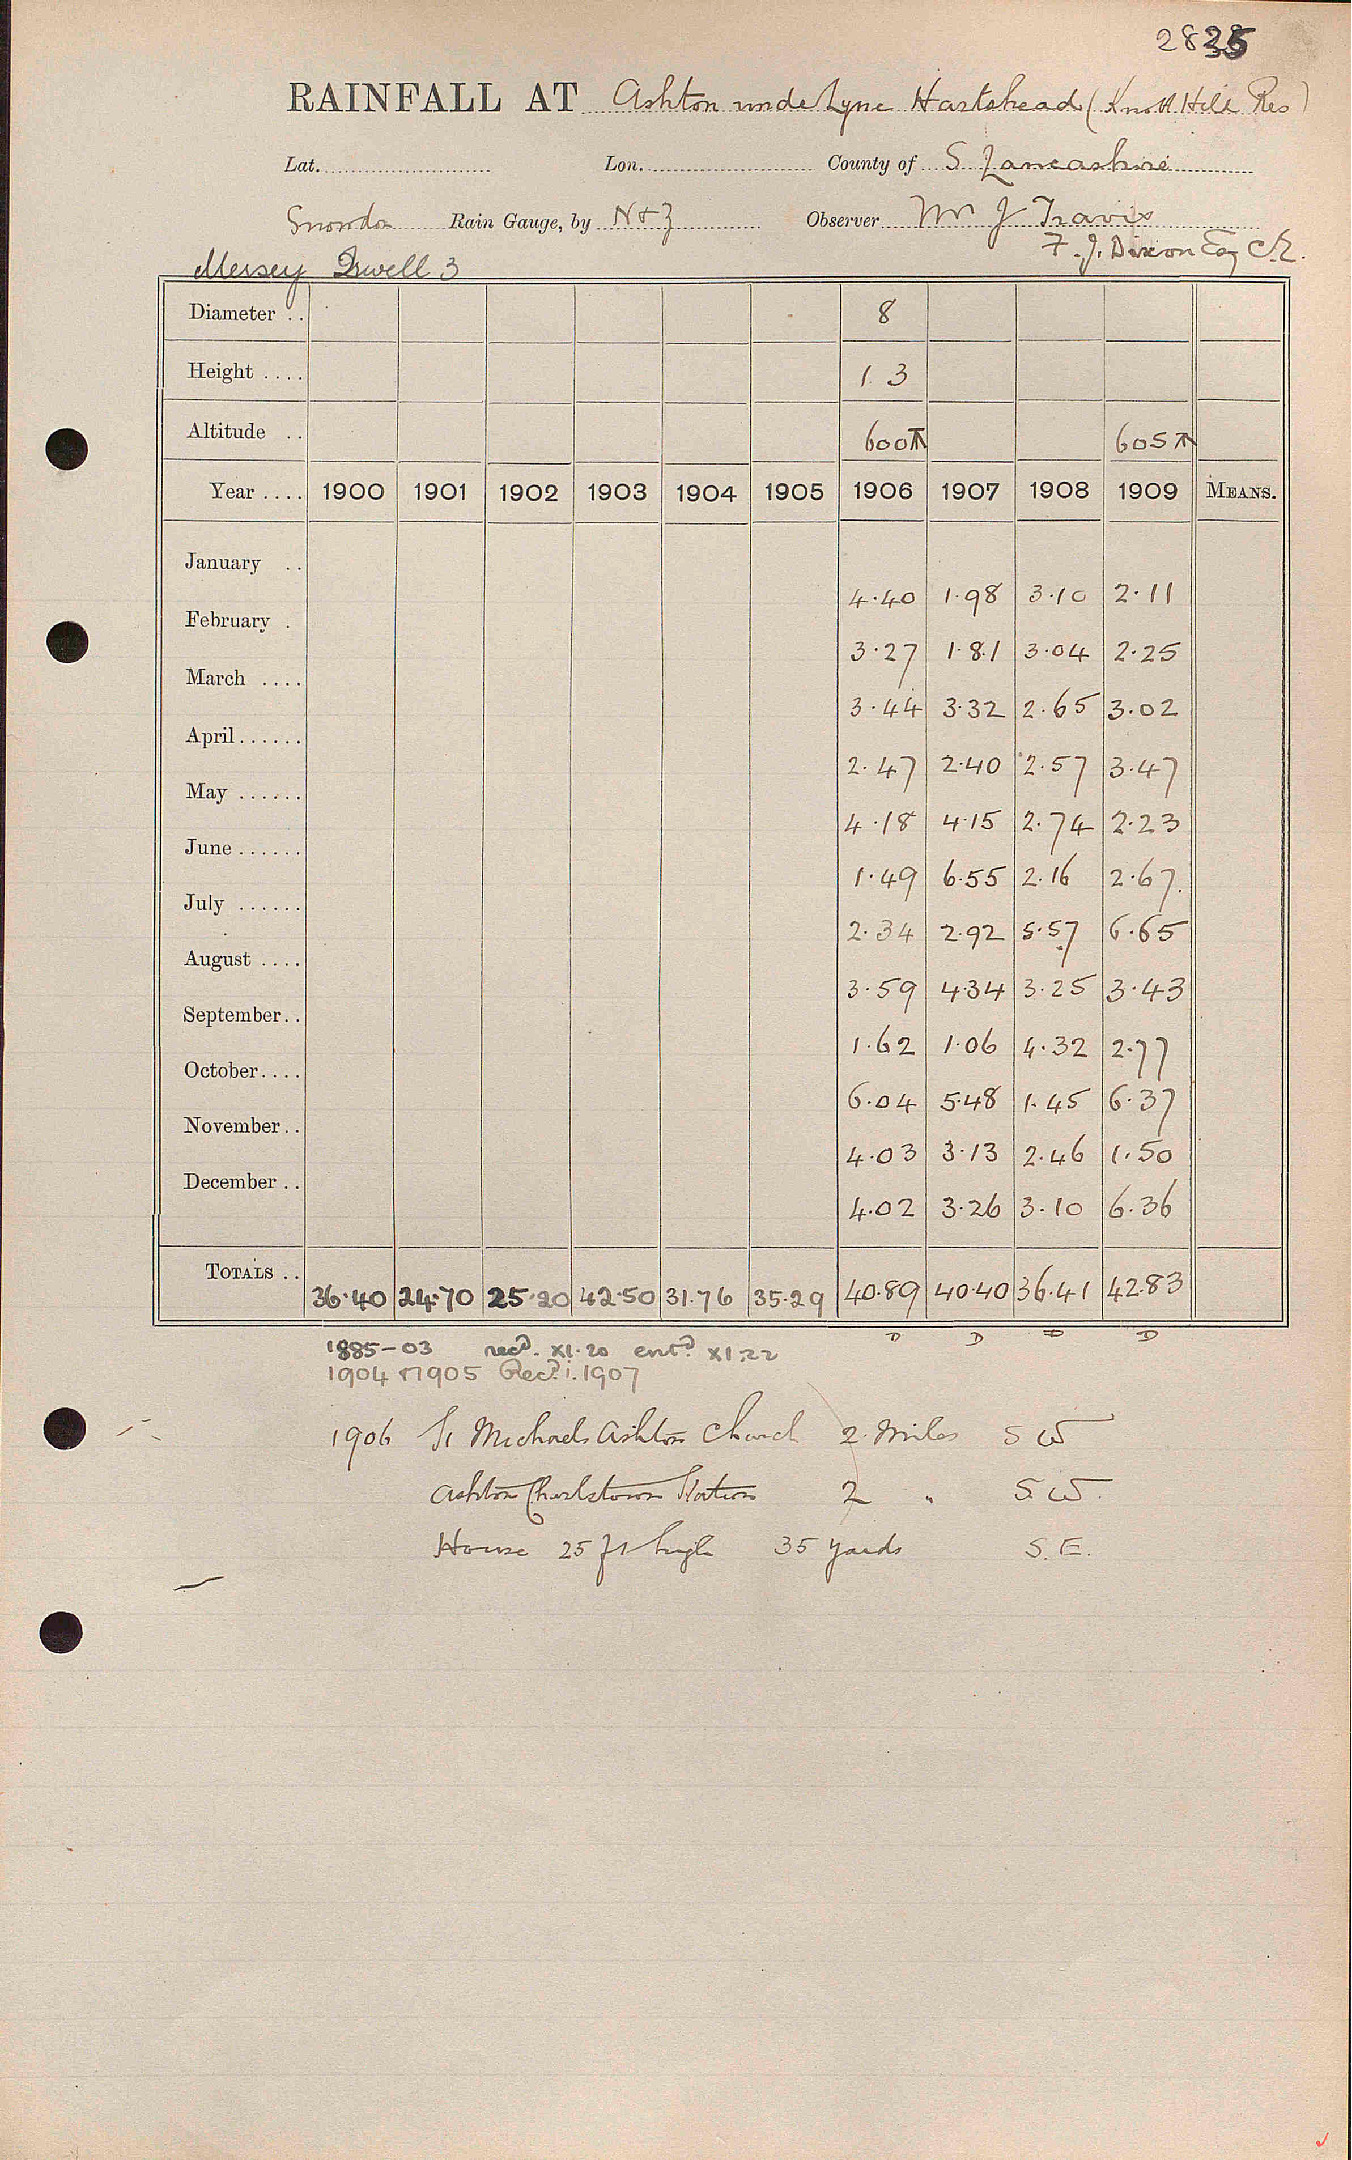 2835
RAINFALL AT Ashton unde Lyne Hartshead (Knott Hill Res)
Lat. Lon. County of S Lancashire
Snowdon Rain Gauge, by N & Z Observer Mr J Travis
F. J. Dixon Esq C.E.
Mersey Irwell 3
Diameter .. 8
Height .... 1 3
Altitude .. 600 605
Year .... 1900 1901 1902 1903 1904 1905 1906 1907 1908 1909 MEANS.
January .. 4.40 1.98 3.10 2.11
February . 3.27 1.81 3.04 2.25
March .... 3.44 3.32 2.65 3.02
April...... 2.47 2.40 2.57 3.47
May ...... 4.18 4.15 2.74 2.23
June ...... 1.49 6.55 2.16 2.67
July ...... 2.34 2.92 5.57 6.65
August .... 3.59 4.34 3.25 3.43
September.. 1.62 1.06 4.32 2.77
October.... 6.04 5.48 1.45 6.37
November.. 4.03 3.13 2.46 1.50
December .. 4.02 3.26 3.10 6.36
TOTALS .. 36.40 24.70 25.20 42.50 31.76 35.29 40.89 40.40 36.41 42.83
D D D D
1885-03 recd. XI.20 entd XI.22
1904 & 1905 Recd. i. 1907
1906 St Michaels Ashton Church 2 Miles S W
Ashton Charlstown Station 2 " S.W.
House 25 ft high 35 yards S.E.